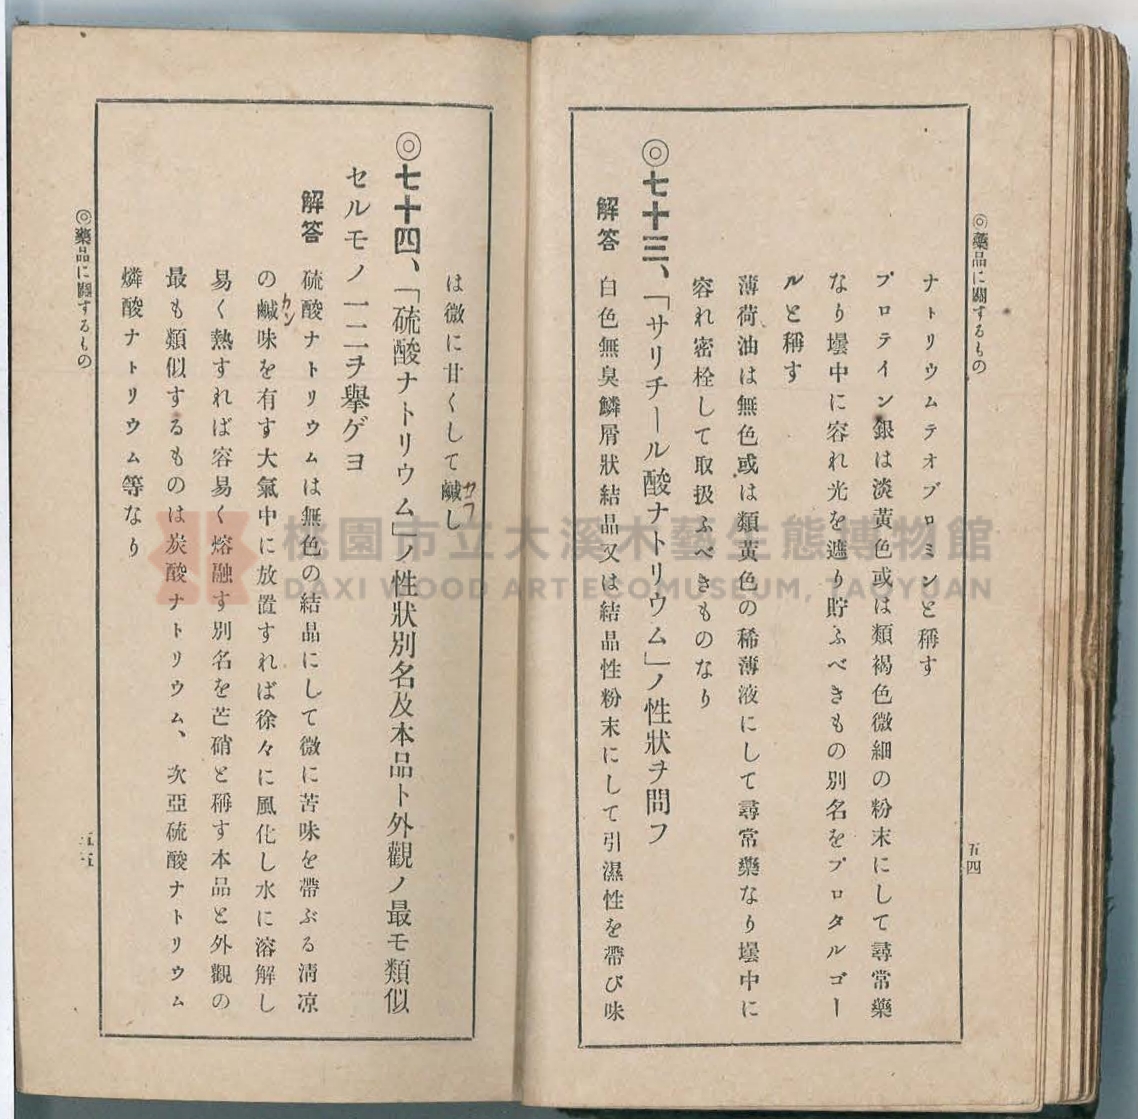 ◎藥品に關するもの
五四
ナトリウムテオブロミンと稱す
プロテイン銀は淡黃色或は類褐色微細の粉末にして尋常藥
なり壜中に容れ光を遮り貯ふべきもの別名をプロタルゴー
ルと稱す
薄荷油は無色或は類黃色の稀薄液にして尋常藥なり壜中に
容れ密栓して取扱ふべきものなり
◎七十三、「サリチール酸ナトリウム」ノ性狀ヲ問フ
解答 白色無臭鱗屑狀結晶又は結晶性粉末にして引濕性を帶び味
は微に甘くして鹹し
◎七十四、「硫酸ナトリウム」ノ性狀別名及本品ト外觀ノ最モ類似
セルモノ一二ヲ擧ゲヨ
解答 硫酸ナトリウムは無色の結晶にして微に苦味を帶ぶる淸凉
の鹹味を有す大氣中に放置すれば徐々に風化し水に溶解し
カン
易く熱すれば容易く熔融す別名を芒硝と稱す本品と外觀の
最も類似するものは炭酸ナトリウム、次亞硫酸ナトリウム
燐酸ナトリウム等なり
◎藥品に關するもの
五五
桃園市立大溪木藝生態博物館
DAXI WOOD ART ECOMUSEUM, TAOYUAN